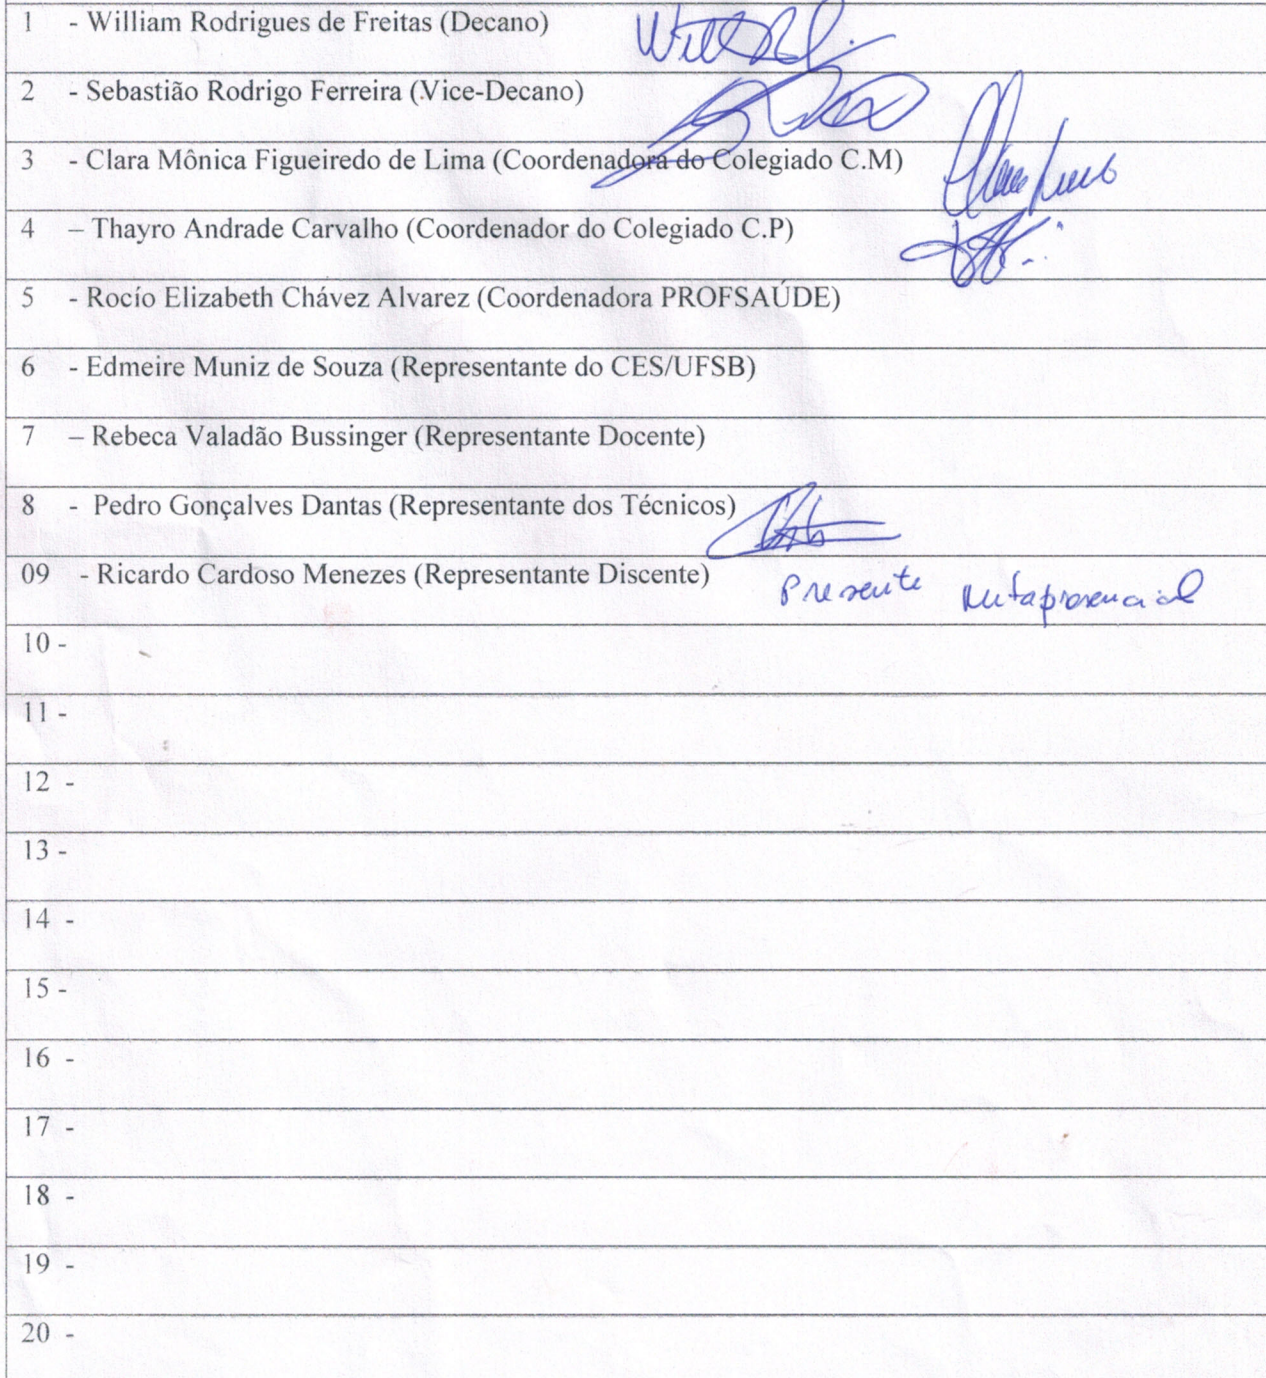 1 - William Rodrigues de Freitas (Decano)
2 - Sebastião Rodrigo Ferreira (Vice-Decano)
3 - Clara Mônica Figueiredo de Lima (Coordenadora do Colegiado C.M)
4 – Thayro Andrade Carvalho (Coordenador do Colegiado C.P)
5 - Rocío Elizabeth Chávez Alvarez (Coordenadora PROFSAÚDE)
6 - Edmeire Muniz de Souza (Representante do CES/UFSB)
7 – Rebeca Valadão Bussinger (Representante Docente)
8 - Pedro Gonçalves Dantas (Representante dos Técnicos)
09 - Ricardo Cardoso Menezes (Representante Discente) Presente Metapresencial
10 -
11 -
12 -
13 -
14 -
15 -
16 -
17 -
18 -
19 -
20 -